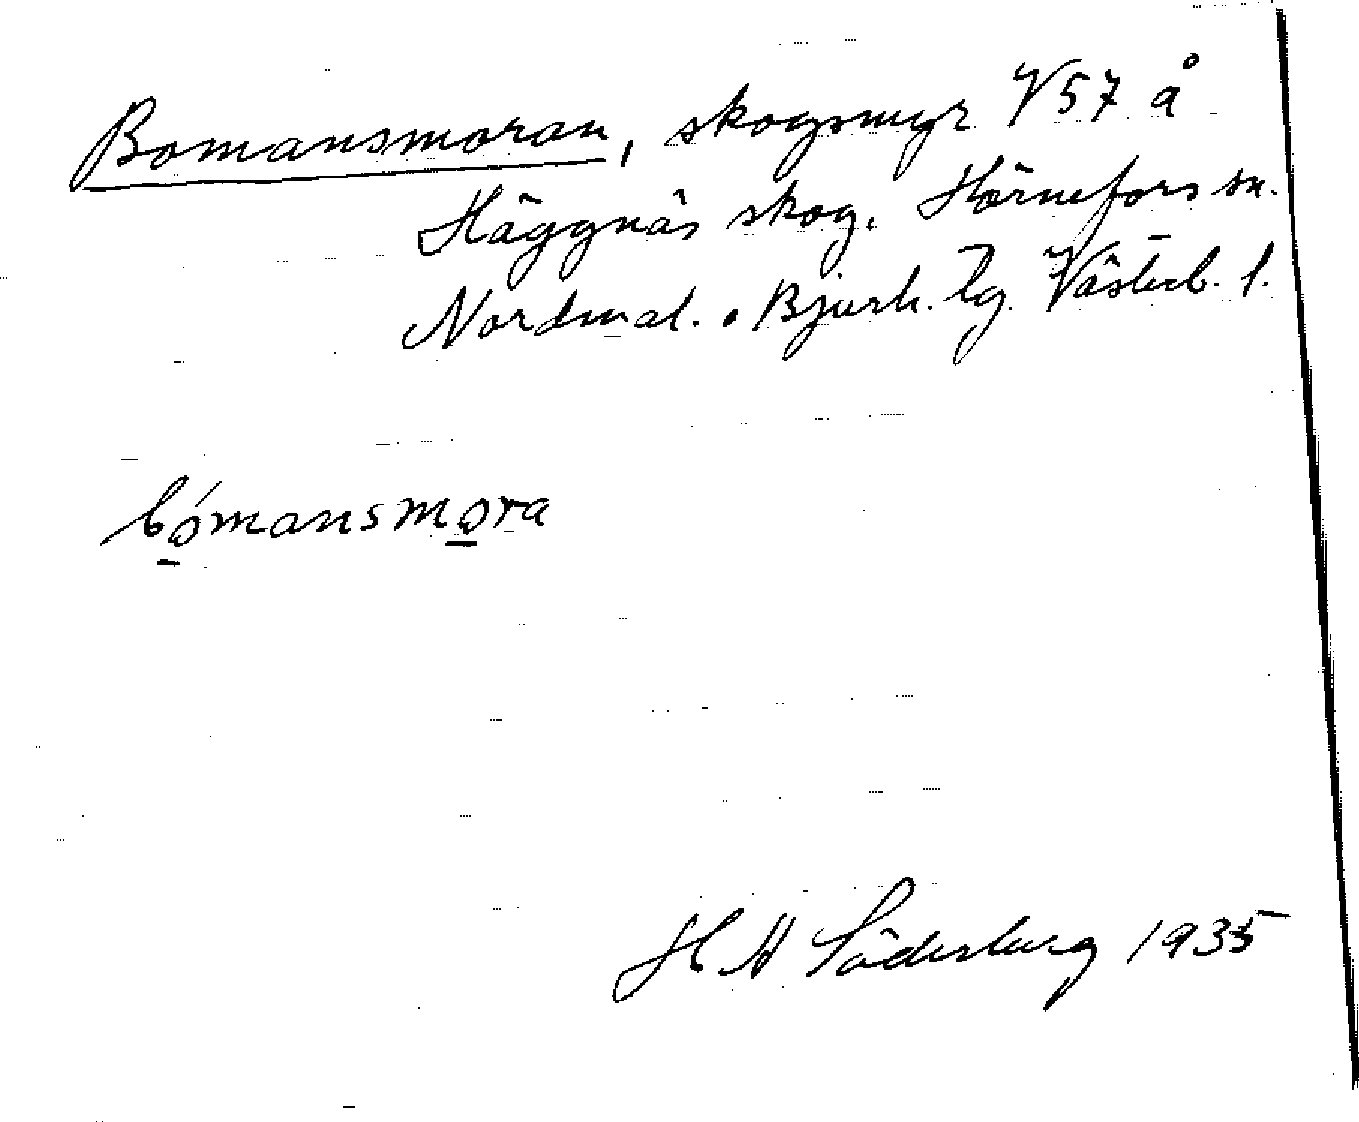 Bomansmoran, skogsmyr V57 å
Häggnäs skog. Hörnefors sn.
Nordmal. o Bjurh. tg. Västerb. l.
bómansmora
H M Söderberg 1935